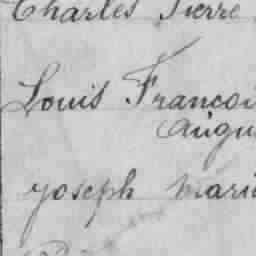 Charles Pierre
Louis Francoi
Augu
Joseph Mari